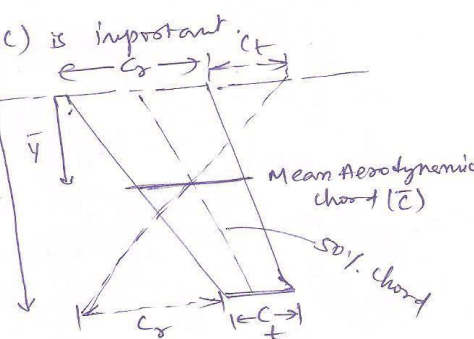 C) is important.
Cr
Ct
ȳ
Mean Aerodynamic
Chord (C̄)
50% Chord
Cr
Ct